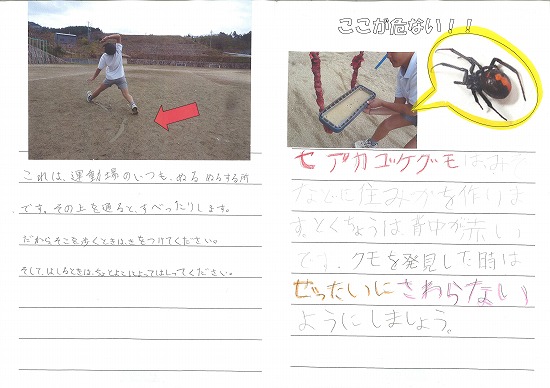 これは、運動場のいつも、ぬるぬるする所
です。その上を通ると、すべったりします。
だからそこを歩くときは、気をつけてください。
そして、はしるときは、ちょとよこによってはしってください。
ここが危ない!!
セアカゴケグモはみぞ
などに住みかを作りま
す。とくちょうは背中が赤い
です。クモを発見した時は
ぜったいにさわらない
ようにしましょう。